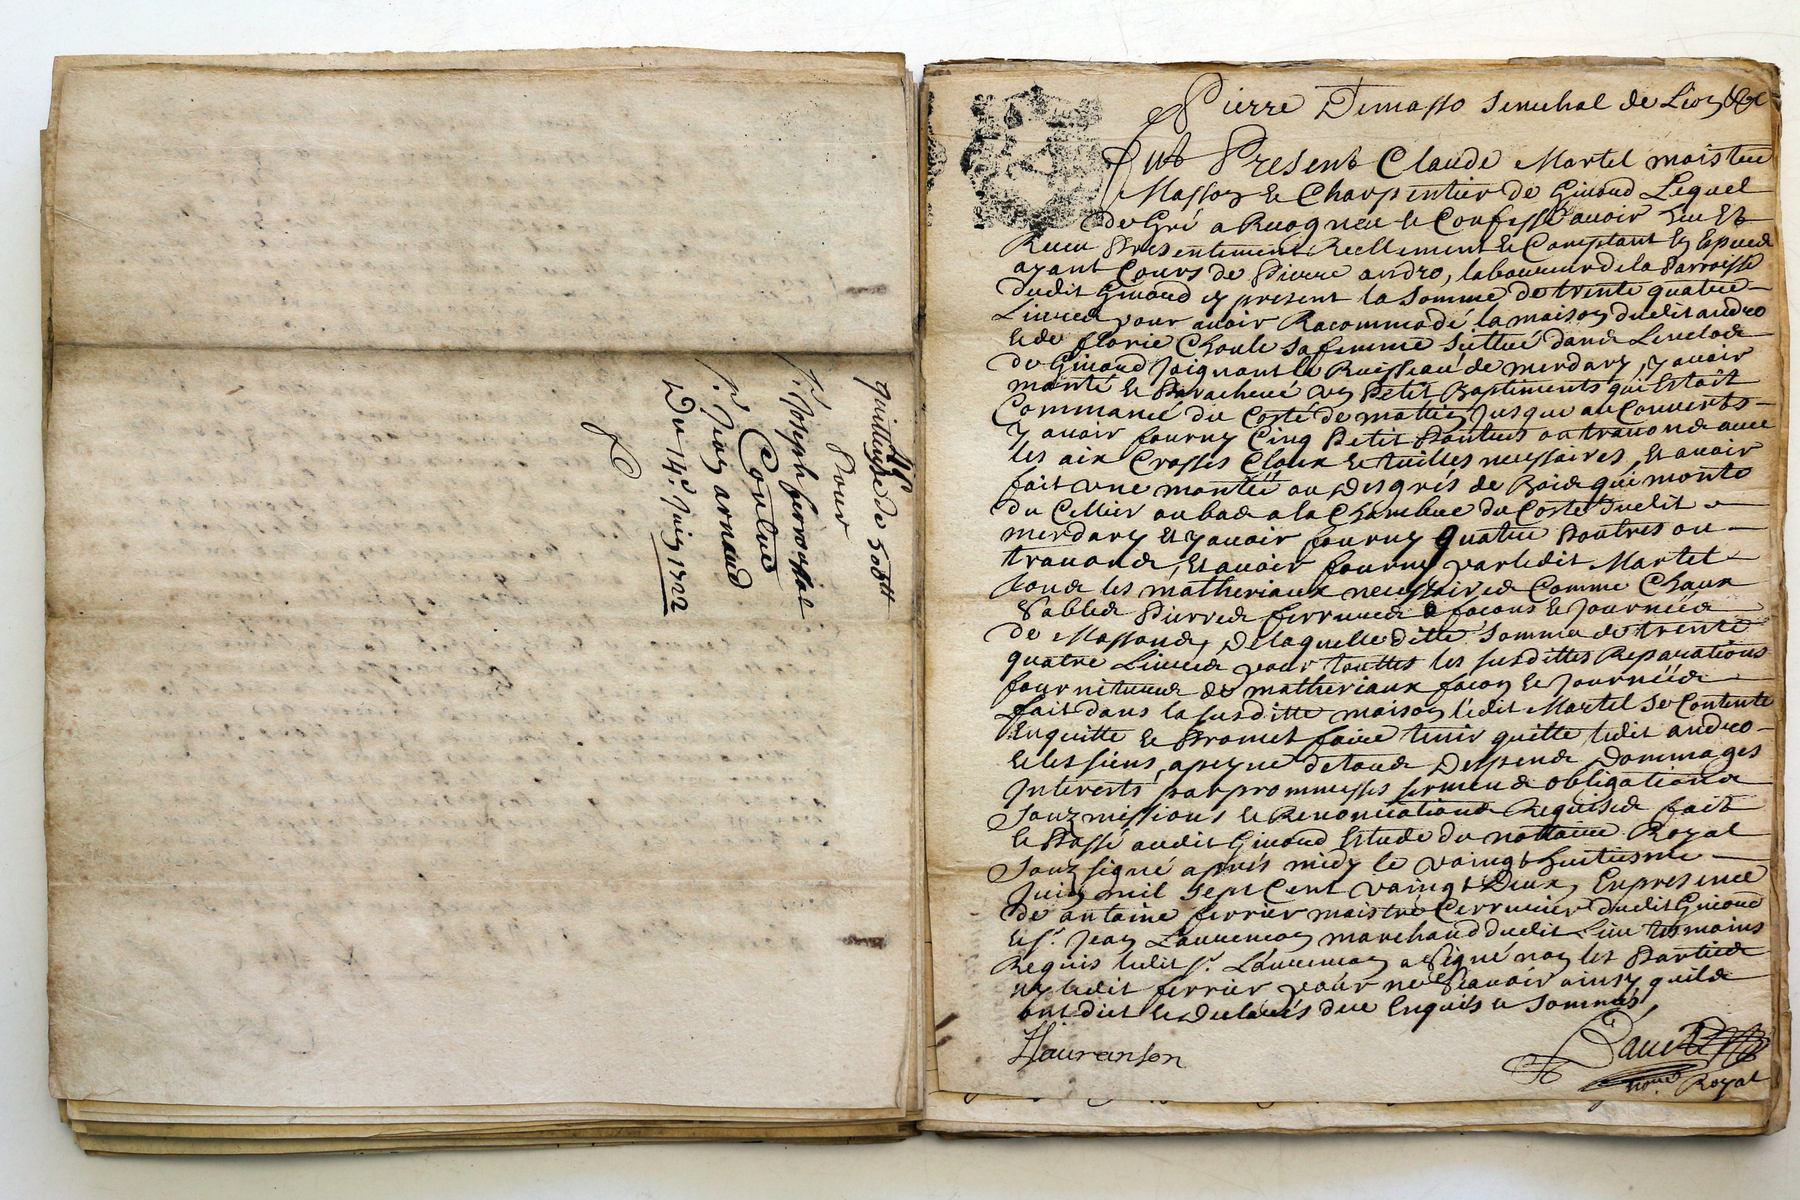 quittance de 306ᵗᵗ
Pour
Sʳ. Joseph ferroussat
Contre
Sʳ. Jean arnaud
Du 14ᵉ. Juin 1722
Pierre Demasso Senechal de Lion &c
fut Present Claude Martel maistre
Masson & Charpentier de Givord Lequel
de Gré a Recogneu & Confessé avoir heu Et
Receu Presentement Reellement & Comptant En Espece
ayant Cours de Pierre andro, laboureur de la Parroisse
dudit Givord cy present la Somme de trente quatre
Livres pour avoir Racommodé la maison dudit andro
& de florie Choule sa femme Scittué dans Lenclos
de Givord Joignant le Ruisseau de merdary, y avoir
monté & Paracheué un Petit Bastiments qui Estoit
Commancé du Costé de mattin Jusque au Couverts
y avoir fourny Cinq Petit Poutres ou travons avec
les aix Crosses Cloux & tuilles necessaires, Et avoir
fait une montée ou Desgrés de Bois qui monte
du Cellier au bas a la Chambre du Costé dudit
merdary Et y avoir fourny quatre Poutres ou
travons Et avoir fourny par ledit Martel
tous les matheriaux necessaires Comme Chaux
Sables Pierres ferrures façons & Journées
de Massons, De laquelle ditte Somme de trente
quatre Livres pour touttes les susdittes Reparations
fournitures de matheriaux façon & Journées
fait dans la susditte maison ledit Martel Se Contente
En quitte & Promet faire tenir quitte ledit andro
& les siens, a peyne de tous Despens Dommages
Interests par prommesses serments obligations
Souzmissions & Renonciations Requises fait
& Passé audit Givord Estude du nottaire Royal
Souzsigné aprés midy le vaingt huitiesme
Juin mil sept Cent vaingt Deux, En presence
de antoine ferrier maistre Serrurier dudit Givord
& sʳ. Jean Laurencon marchand dudit Lieu tesmoins
Requis ledit sʳ. Laurencon a Signé non les Parties
ny ledit ferrier pour ne Sçavoir ainsy quils
ont dict & Declarés de ce Enquis & Sommés
JLauranson
noʳᵉ. Royal